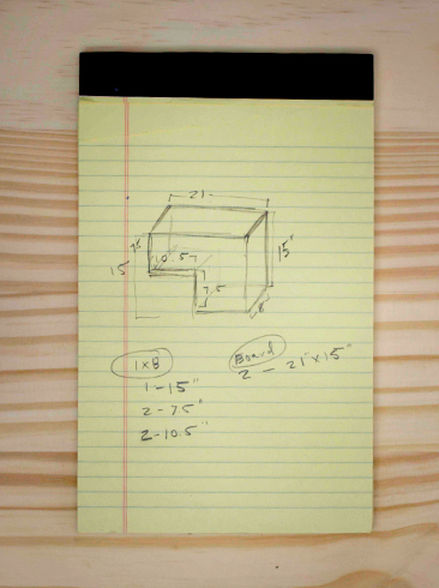 21
7.5
10.5
15
15"
7.5
8
1x8
1-15"
2-7.5"
2-10.5"
Board
2 - 21"x15"